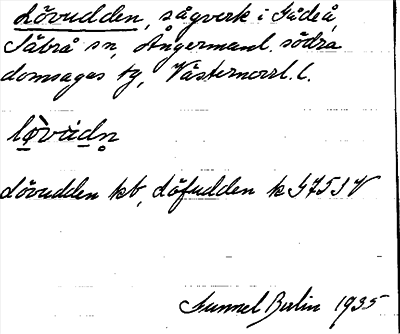 Lövudden, sågverk i Gådeå,
Säbrå sn, Ångermanl. södra
domsagas tg, Västernorrl. l.
lø̀vùdn̥
Lövudden kb, Löfudden k G7531 V
Gunnel Berlin 1935